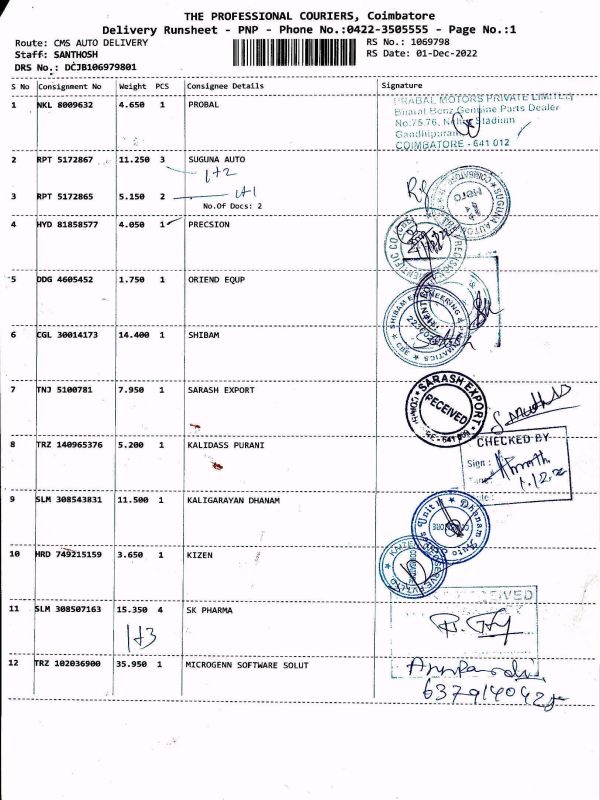 THE PROFESSIONAL COURIERS, Coimbatore
Delivery Runsheet - PNP - Phone No.:0422-3505555 - Page No.:1
Route: CMS AUTO DELIVERY RS No.: 1069798
Staff: SANTHOSH RS Date: 01-Dec-2022
DRS No.: DCJB106979801
S No Consignment No Weight PCS Consignee Details Signature
1 NKL 8009632 4.650 1 PROBAL
PRABAL MOTORS PRIVATE LIMITED
Bharat Benz Genuine Parts Dealer
No:75,76, Nehru Stadium
Gandhipuram
COIMBATORE - 641 012
2 RPT 5172867 11.250 3 SUGUNA AUTO
1+2
3 RPT 5172865 5.150 2 1+1
No.Of Docs: 2
SUGUNA AUTO
4 HYD 81858577 4.050 1 PRECSION
5 DDG 4605452 1.750 1 ORIEND EQUP
6 CGL 30014173 14.400 1 SHIBAM
SHIBAM ENGINEERING &
CBE
7 TNJ 5100781 7.950 1 SARASH EXPORT
SARASH EXPORT
RECEIVED
8 TRZ 140965376 5.200 1 KALIDASS PURANI
CHECKED BY
Sign :
1.12.22
9 SLM 308543831 11.500 1 KALIGARAYAN DHANAM
Unit II Dhanam Auto
10 HRD 749215159 3.650 1 KIZEN
11 SLM 308507163 15.350 4 SK PHARMA
1+3
RECEIVED
12 TRZ 102036900 35.950 1 MICROGENN SOFTWARE SOLUT